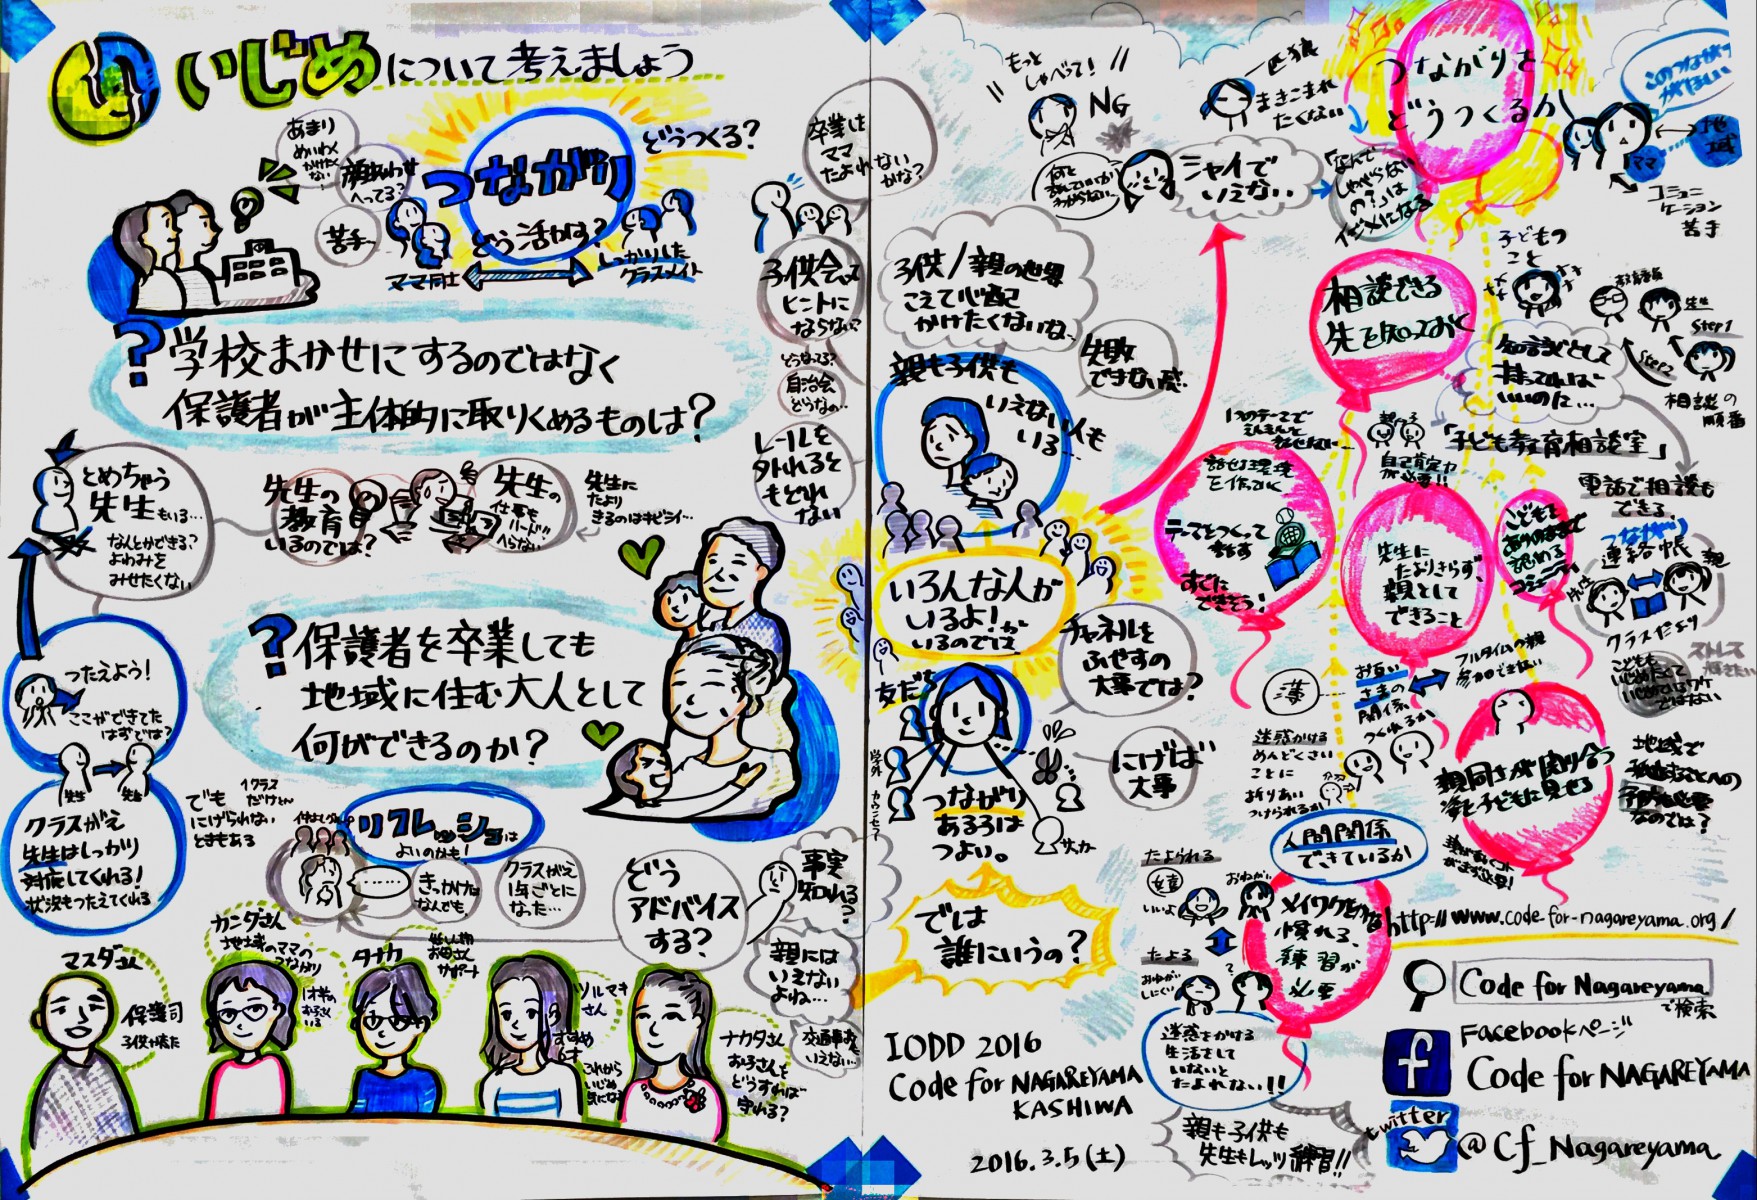 いじめについて考えましょう
あまり
めいわく
かけたく
ない
顔あわせ
へってる?
苦手
つながり
どうつくる?
どう活かす?
ママ同士
しっかりした
クラスメイト
卒業は
ママ
たよれない
かな?
子供会って
ヒントに
ならない?
どうなってる?
自治会
どうなの…
レールを
外れると
もどれ
ない
? 学校まかせにするのではなく
保護者が主体的に取りくめるものは?
とめちゃう
先生もいる…
なんとかできる?
よわみを
みせたくない
先生の
教育
いるのでは?
先生の
仕事も
へらない
先生に
たより
きるのはキビシイ…
つたえよう!
ここができてた
はずでは?
先生
先生
クラスがえ
先生はしっかり
対応してくれる!
状況もつたえてくれる
? 保護者を卒業しても
地域に住む大人として
何ができるのか?
でも
1クラス
だけとか
にげられない
ときもある
リフレッシュは
よいのかも!
きっかけは
なんでも、
クラスがえ
1年ごとに
なった…
どう
アドバイス
する?
事実
知れる?
親には
いえない
よね…
マスダさん
保護司
カンダさん
地域のママの
つながり
タナカ
お母さん
サポート
ソルマキ
さん
これから
いじめ
気になる
ナカタさん
お子さんも
どうすれば
守れる?
もっと
しゃべって!
NG
一匹狼
まきこまれ
たくない
シャイで
いえない
「なんで
しゃべらない
の?」は
イジメになる
つながりを
どうつくるか
このつながり
がほしい
ママ
地域
コミュニ
ケーション
苦手
子供/親の世界
こえて心配
かけたくないな…
失敗
できない感
親も子供も
いえない人も
いる…
いろんな人が
いるよ!が
いるのでは
チャネルを
ふやすの
大事では?
友だち
学外
カウンセラー
サッカー
にげば
大事
つながり
あるろは
つよい。
では
誰にいうの?
相談できる
先を知っておく
子どもの
こと
先生
Step1
Step2
相談の
順番
知識として
持ってれば
いいのに…
「子ども教育相談室」
自己肯定力
が必要!!
電話で相談も
できる。
話せる環境
を作っておく
テーマをつくって
話す
すぐに
できそう!
先生に
たよりきらず、
親として
できること
こどもを
ありのままで
認める
コミュニティ
つながり
連絡帳
先生
親
クラスだより
こどもも
いじめたくて
いじめてるワケ
ではない
ストレス
薄
お互い
さまの
関係
つくれるか
フルタイムの親
参加できない
迷惑かける
めんどくさい
ことに
折りあい
つけられるか
親同士が関り合う
姿を子どもに見せる
地域で
人間関係
できているか
たよられる
嬉
いいよ
おねがい
たよる
おねがい
しにくい
メイワクをかける
慣れる、
練習が
必要
迷惑をかける
生活をして
いないと
たよれない!!
親も子供も
先生もレッツ練習!!
IODD 2016
Code for NAGAREYAMA
KASHIWA
2016.3.5(土)
http://www.code-for-nagareyama.org/
Code for Nagareyama
で検索
f
Facebookページ
Code for NAGAREYAMA
twitter
@Cf_Nagareyama